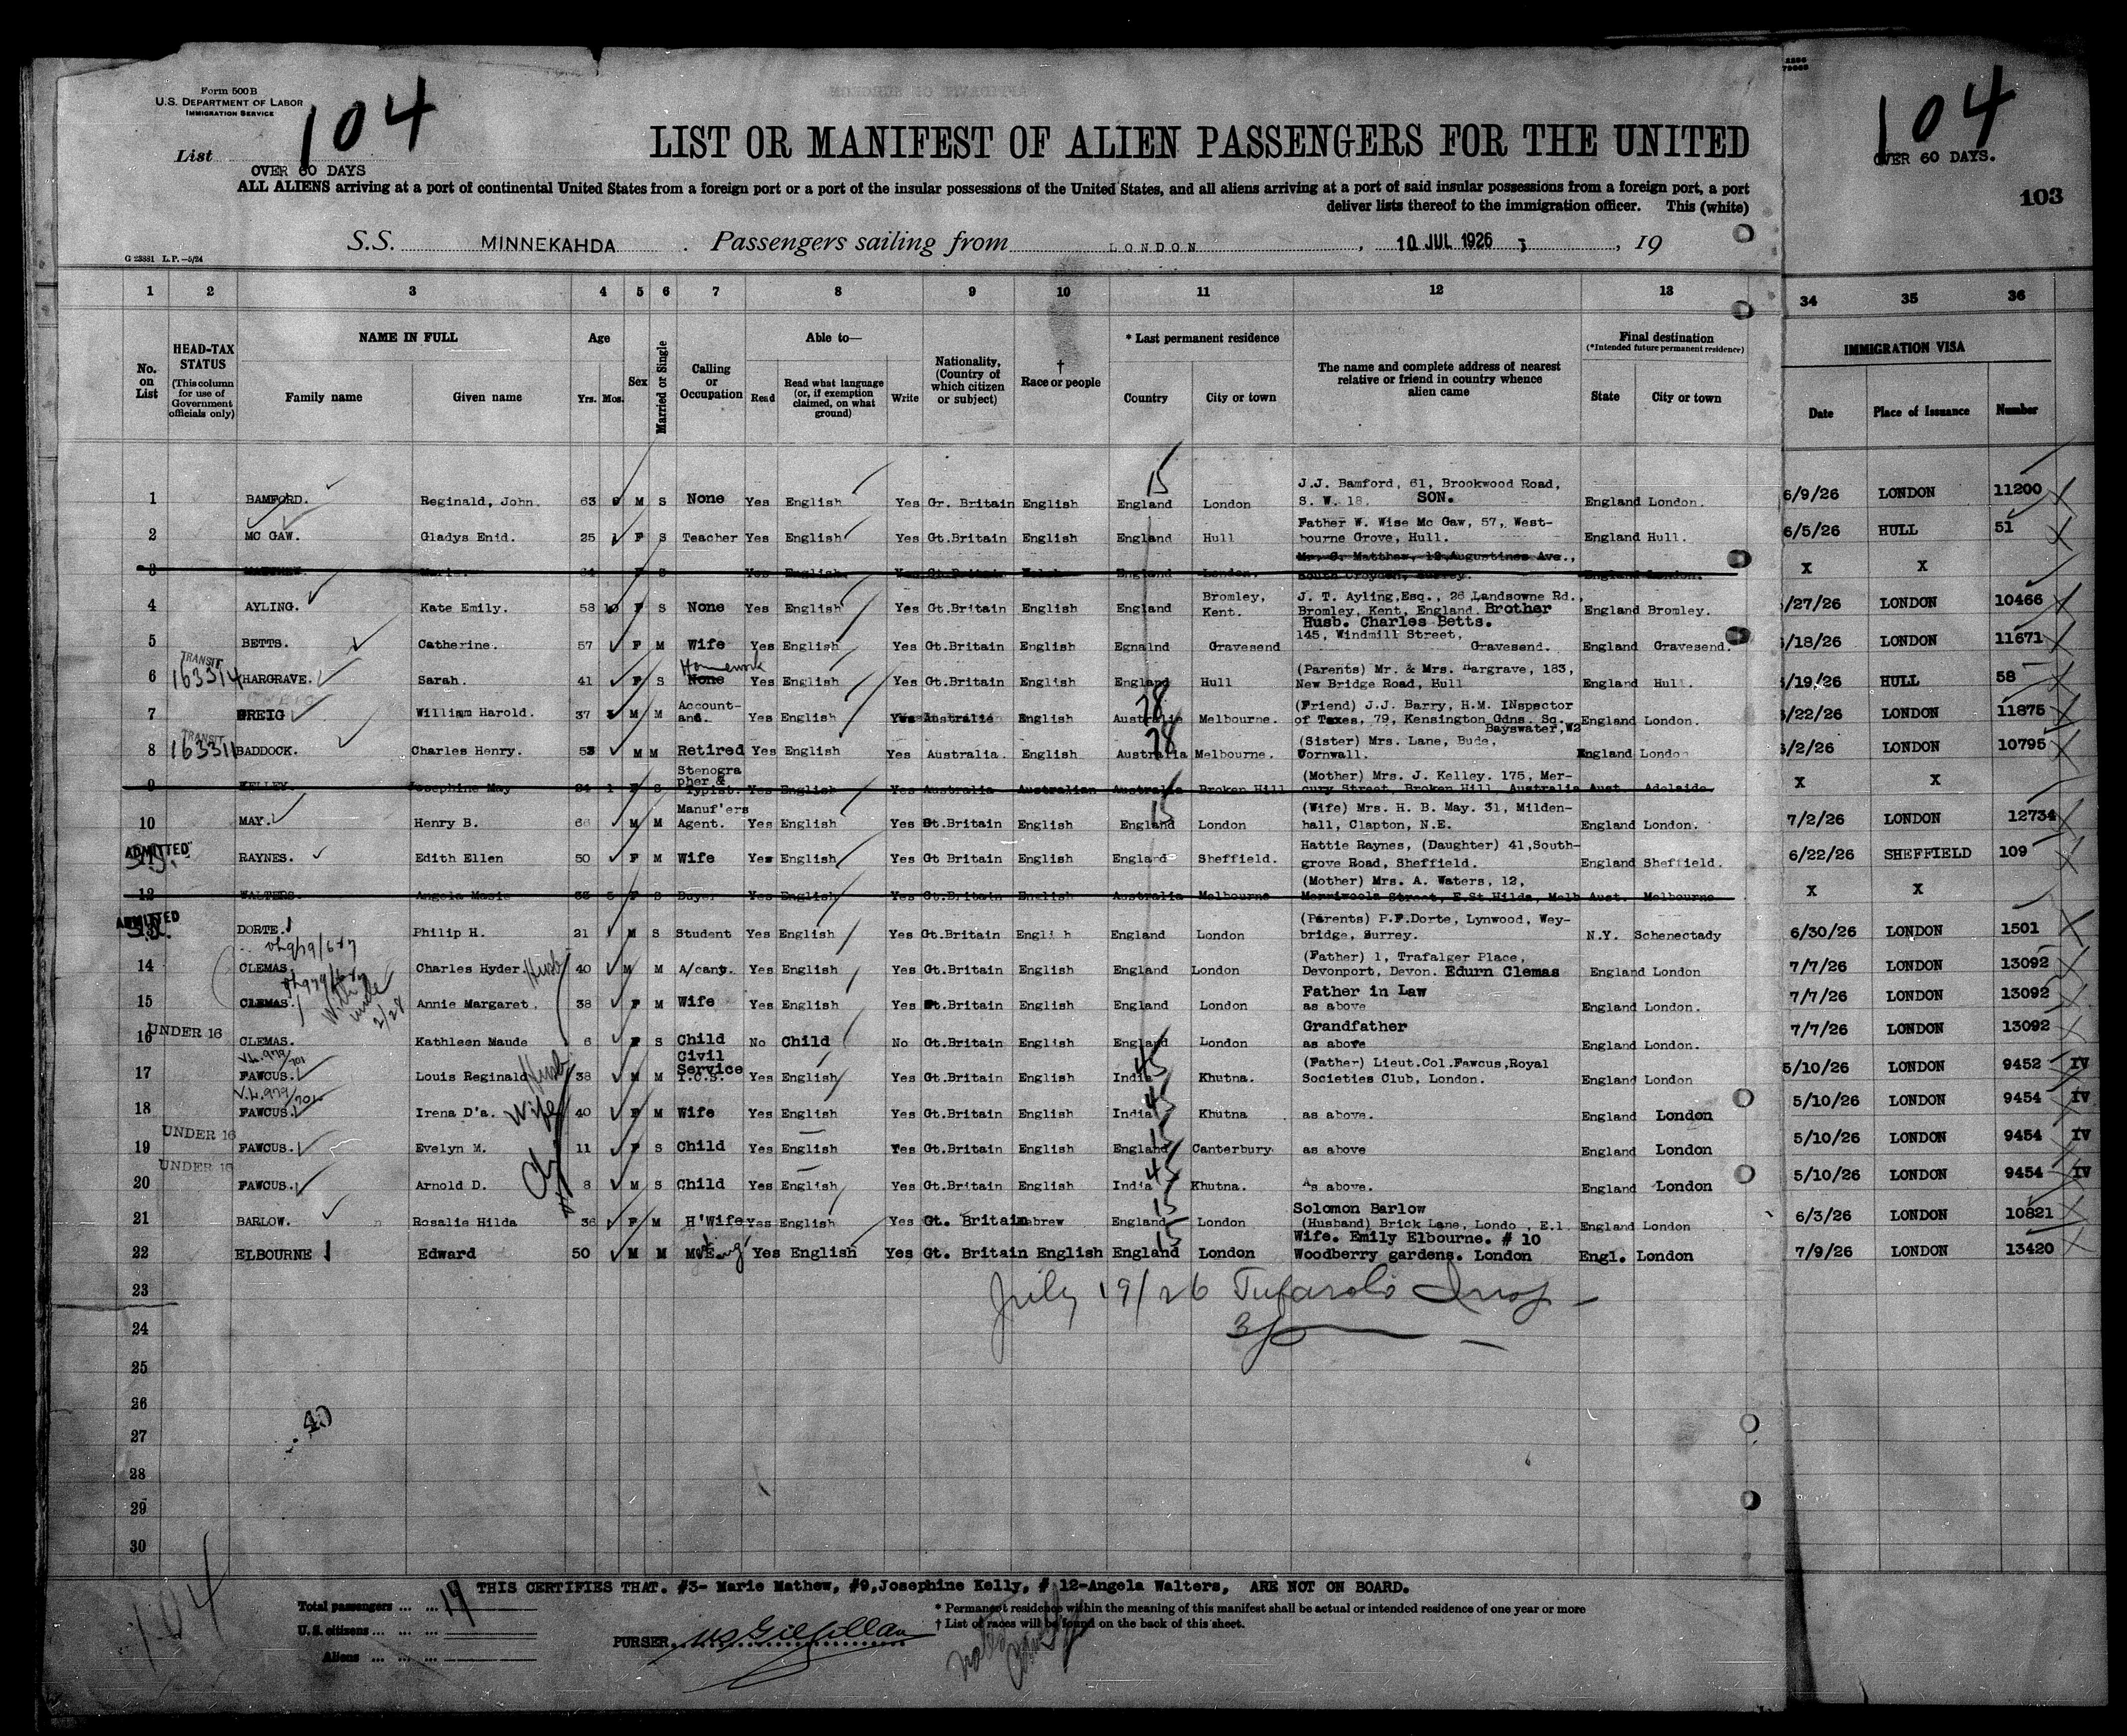 Form 500 B
U.S. DEPARTMENT OF LABOR
IMMIGRATION SERVICE
104
List
OVER 60 DAYS
LIST OR MANIFEST OF ALIEN PASSENGERS FOR THE UNITED
ALL ALIENS arriving at a port of continental United States from a foreign port or a port of the insular possessions of the United States, and all aliens arriving at a port of said insular possessions from a foreign port, a port
deliver lists thereof to the immigration officer. This (white)
S.S. MINNEKAHDA . Passengers sailing from LONDON , 10 JUL 1926 , 19
G 23881 L.P.—5/24
104
OVER 60 DAYS.
103
1 2 3 4 5 6 7 8 9 10 11 12 13 34 35 36
No. on List
HEAD-TAX STATUS (This column for use of Government officials only)
NAME IN FULL
Family name Given name
Age Yrs. Mos.
Sex
Married or Single
Calling or Occupation
Able to—
Read Read what language (or, if exemption claimed, on what ground) Write
Nationality, (Country of which citizen or subject)
† Race or people
* Last permanent residence
Country City or town
The name and complete address of nearest relative or friend in country whence alien came
Final destination
(*Intended future permanent residence)
State City or town
IMMIGRATION VISA
Date Place of Issuance Number
1 BAMFORD. Reginald, John. 63 M S None Yes English Yes Gr. Britain English England London J.J. Bamford, 61, Brookwood Road, S. W. 18. SON. England London. 6/9/26 LONDON 11200
2 MC GAW. Gladys Enid. 25 F S Teacher Yes English Yes Gt.Britain English England Hull Father W. Wise Mc Gaw, 57, West-bourne Grove, Hull. England Hull. 6/5/26 HULL 51
3 F S Yes English Yes Gt.Britain England London. Mr. C. Matthew, 12 Augustines Ave., South Croydon, Surrey. England London. X X
4 AYLING. Kate Emily. 58 10 F S None Yes English Yes Gt.Britain English England Bromley, Kent. J. T. Ayling,Esq., 26 Landsowne Rd., Bromley, Kent, England. Brother England Bromley. /27/26 LONDON 10466
5 BETTS. Catherine. 57 F M Wife Yes English Yes Gt.Britain English Egnalnd Gravesend Husb. Charles Betts. 145, Windmill Street, Gravesend. England Gravesend. /18/26 LONDON 11671
TRANSIT 163314
6 HARGRAVE. Sarah. 41 F S None Homework Yes English Yes Gt.Britain English England Hull (Parents) Mr. & Mrs. Hargrave, 183, New Bridge Road, Hull England Hull. /19/26 HULL 58
7 GREIG William Harold. 37 M M Account-ant. Yes English Yes Australia English Australia 28 Melbourne. (Friend) J.J. Barry, H.M. INspector of Taxes, 79, Kensington Gdns. Sq. Bayswater,W2 England London. /22/26 LONDON 11875
TRANSIT 163311
8 BADDOCK. Charles Henry. 53 M M Retired Yes English Yes Australia. English Australia 28 Melbourne. (Sister) Mrs. Lane, Bude, Cornwall. England London /2/26 LONDON 10795
9 KELLEY. Josephine May 24 1 F S Stenographer & Typist. Yes English Yes Australia Australian Australia Broken Hill (Mother) Mrs. J. Kelley. 175, Mer-cury Street, Broken Hill, Australia Aust. Adelaide. X X
10 MAY. Henry B. 66 M M Manuf'ers Agent. Yes English Yes Gt.Britain English England 15 London (Wife) Mrs. H. B. May. 31, Milden-hall, Clapton, N.E. England London. 7/2/26 LONDON 12734
ADMITTED
11 RAYNES. Edith Ellen 50 F M Wife Yes English Yes Gt Britain English England Sheffield. Hattie Raynes, (Daughter) 41,South-grove Road, Sheffield. England Sheffield. 6/22/26 SHEFFIELD 109
12 WALTERS. Angela Masie 33 F S Buyer Yes English Yes Gt.Britain English Australia Melbourne (Mother) Mrs. A. Waters, 12, Merriwoola Street, E.St.Hilda, Melb Aust. Melbourne. X X
ADMITTED
13 DORTE. Philip H. 21 M S Student Yes English Yes Gt.Britain English England London (Parents) P.F.Dorte, Lynwood, Wey-bridge, Surrey. N.Y. Schenectady 6/30/26 LONDON 1501
14 CLEMAS. Charles Hyder Husb 40 M M A/cant. Yes English Yes Gt.Britain English England London (Father) 1, Trafalger Place, Devonport, Devon. Edurn Clemas England London 7/7/26 LONDON 13092
15 CLEMAS. Annie Margaret. 38 F M Wife Yes English Yes Gt.Britain English England London Father in Law as above England London. 7/7/26 LONDON 13092
UNDER 16
16 CLEMAS. Kathleen Maude 6 F S Child No Child No Gt.Britain English England London Grandfather as above England London. 7/7/26 LONDON 13092
17 FAWCUS. Louis Reginald Husb 38 M M Civil Service I.C.S. Yes English Yes Gt.Britain English India 45 Khutna. (Father) Lieut.Col.Fawcus,Royal Societies Club, London. England London 5/10/26 LONDON 9452 IV
18 FAWCUS. Irena D'a. Wife 40 F M Wife Yes English Yes Gt.Britain English India 45 Khutna as above. England London 5/10/26 LONDON 9454 IV
UNDER 16
19 FAWCUS. Evelyn M. 11 F S Child Yes English Yes Gt.Britain English England 15 Canterbury as above England London 5/10/26 LONDON 9454 IV
UNDER 16
20 FAWCUS. Arnold D. 8 M S Child Yes English Yes Gt.Britain English India 45 Khutna. As above. England London 5/10/26 LONDON 9454 IV
21 BARLOW. Rosalie Hilda 36 F M H'Wife Yes English Yes Gt. Britain Hebrew England 15 London Solomon Barlow (Husband) Brick Lane, Londo , E.1. England London 6/3/26 LONDON 10821
22 ELBOURNE Edward 50 M M Yes English Yes Gt. Britain English England 15 London Wife. Emily Elbourne. # 10 Woodberry gardens. London Engl. London 7/9/26 LONDON 13420
23
July 19/26
24
25
26
27
28
29
30
THIS CERTIFIES THAT. #3- Marie Mathew, #9,Josephine Kelly, # 12-Angela Walters, ARE NOT ON BOARD.
Total passengers ... ... 19
U.S. citizens ... ... ...
Aliens ... ... ...
PURSER.
* Permanent residence within the meaning of this manifest shall be actual or intended residence of one year or more
† List of races will be found on the back of this sheet.
104